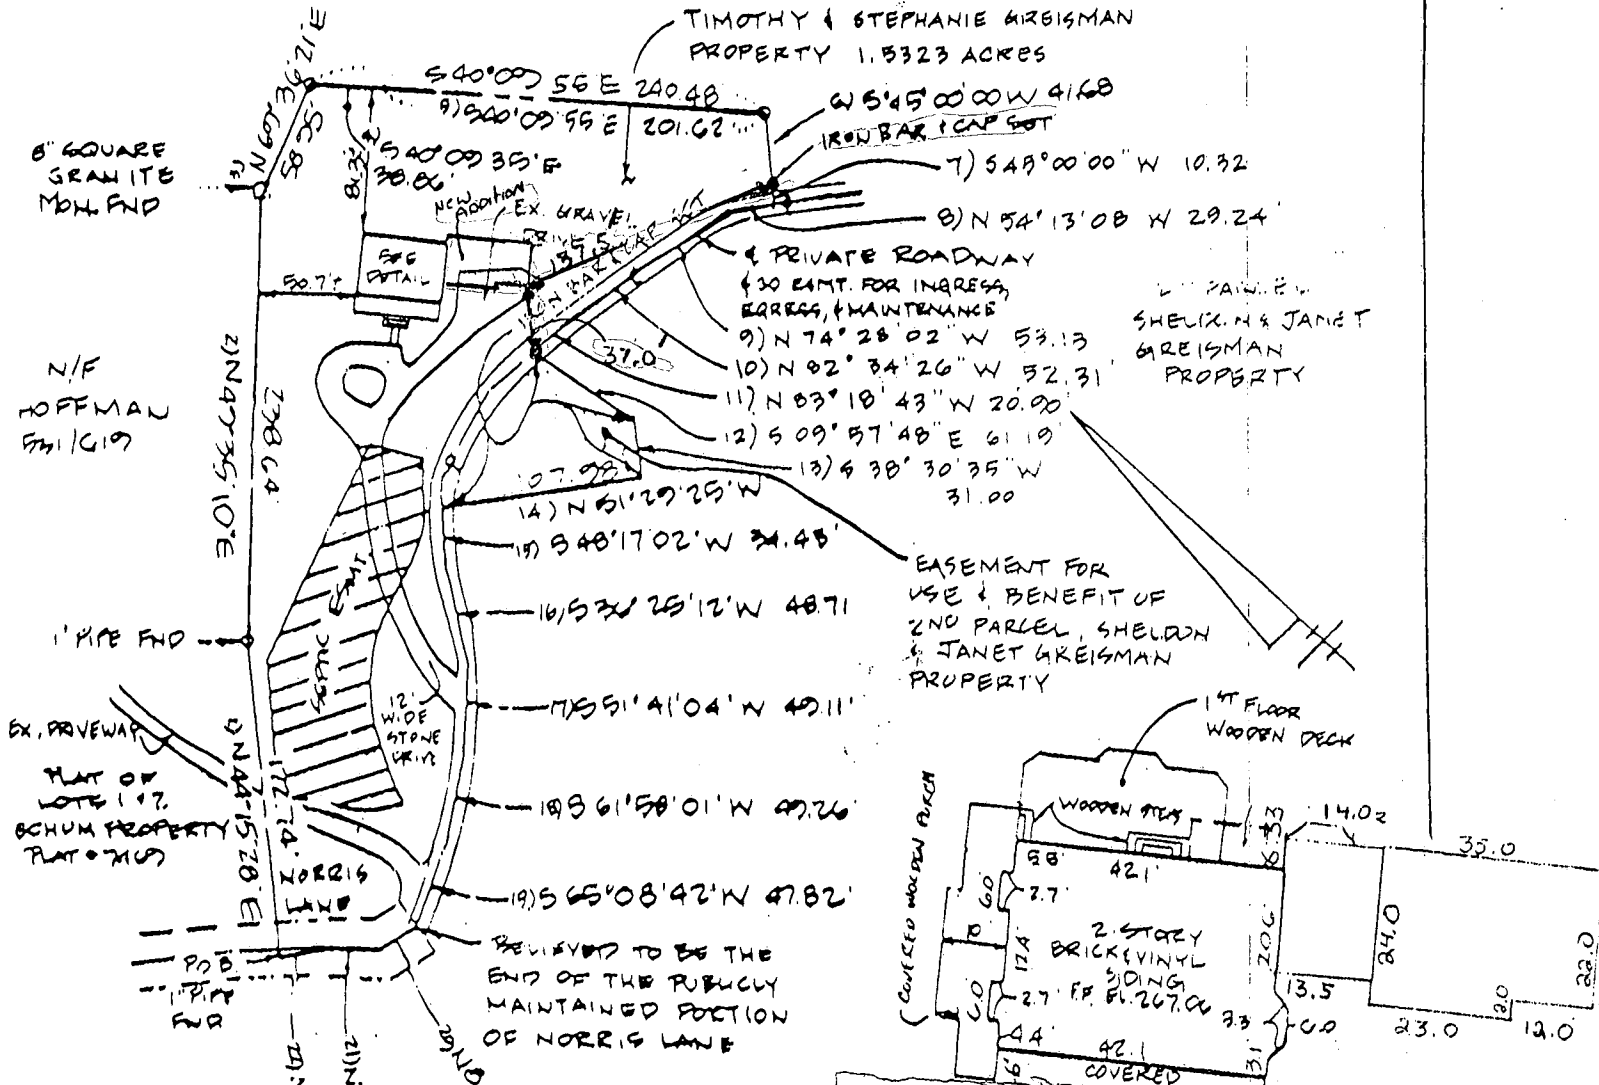 TIMOTHY & STEPHANIE GREISMAN
PROPERTY 1.5323 ACRES
S40°09 55 E 240.48
5) S40°09'55 E 201.62
6) S'45°00'00 W 41.68
IRON BAR & CAP SET
7) S45°00'00" W 10.32
8) N 54°13'08 W 29.24'
8" SQUARE
GRANITE
MON. FND
S40°09 35' E
38.86'
NEW
ADDITION
EX. GRAVEL
DRIVE
137.5
IRON BAR & CAP SET
SEE
DETAIL
50.7±
¢ PRIVATE ROADWAY
& 30 ESMT. FOR INGRESS,
EGRESS, & MAINTENANCE
9) N 74° 28' 02" W 53.13
10) N 82° 34' 26" W 52.31'
11) N 83° 18' 43" W 20.90
12) S 09° 57' 48" E 61.19'
13) S 38° 30' 35" W
31.00
37.0
SHELDON & JANET
GREISMAN
PROPERTY
N/F
HOFFMAN
531/619
2) N 47°35'10"E
238.64'
107.98
14) N 51°29'25" W
15) S 48°17'02" W 34.43'
16) S 36° 25'12" W 48.71
17) S 51° 41'04" W 49.11'
18) S 61°58'01" W 49.26'
19) S 65°08'42" W 47.82'
EASEMENT FOR
USE & BENEFIT OF
2ND PARCEL, SHELDON
& JANET GREISMAN
PROPERTY
SEPTIC ESMT
1" PIPE FND
12'
WIDE
STONE
DRIVE
EX. DRIVEWAY
PLAT OF
LOTS 1 & 2
SCHUM PROPERTY
1) N 44°15'28" E
172.74'
NORRIS
LANE
P.O.B.
1" PIPE
FND
BELIEVED TO BE THE
END OF THE PUBLICLY
MAINTAINED PORTION
OF NORRIS LANE
1ST FLOOR
WOODEN DECK
WOODEN STEPS
COVERED WOODEN PORCH
5.8'
42.1'
14.02
35.0
6.0
2.7'
12.4
6.0
2.7'
4.4
2. STORY
BRICK & VINYL
SIDING
F.F. EL. 267.06
20.6
24.0
22.0
13.5
23.0
2.0
12.0'
3.3
6.0
3.1
42.1
COVERED